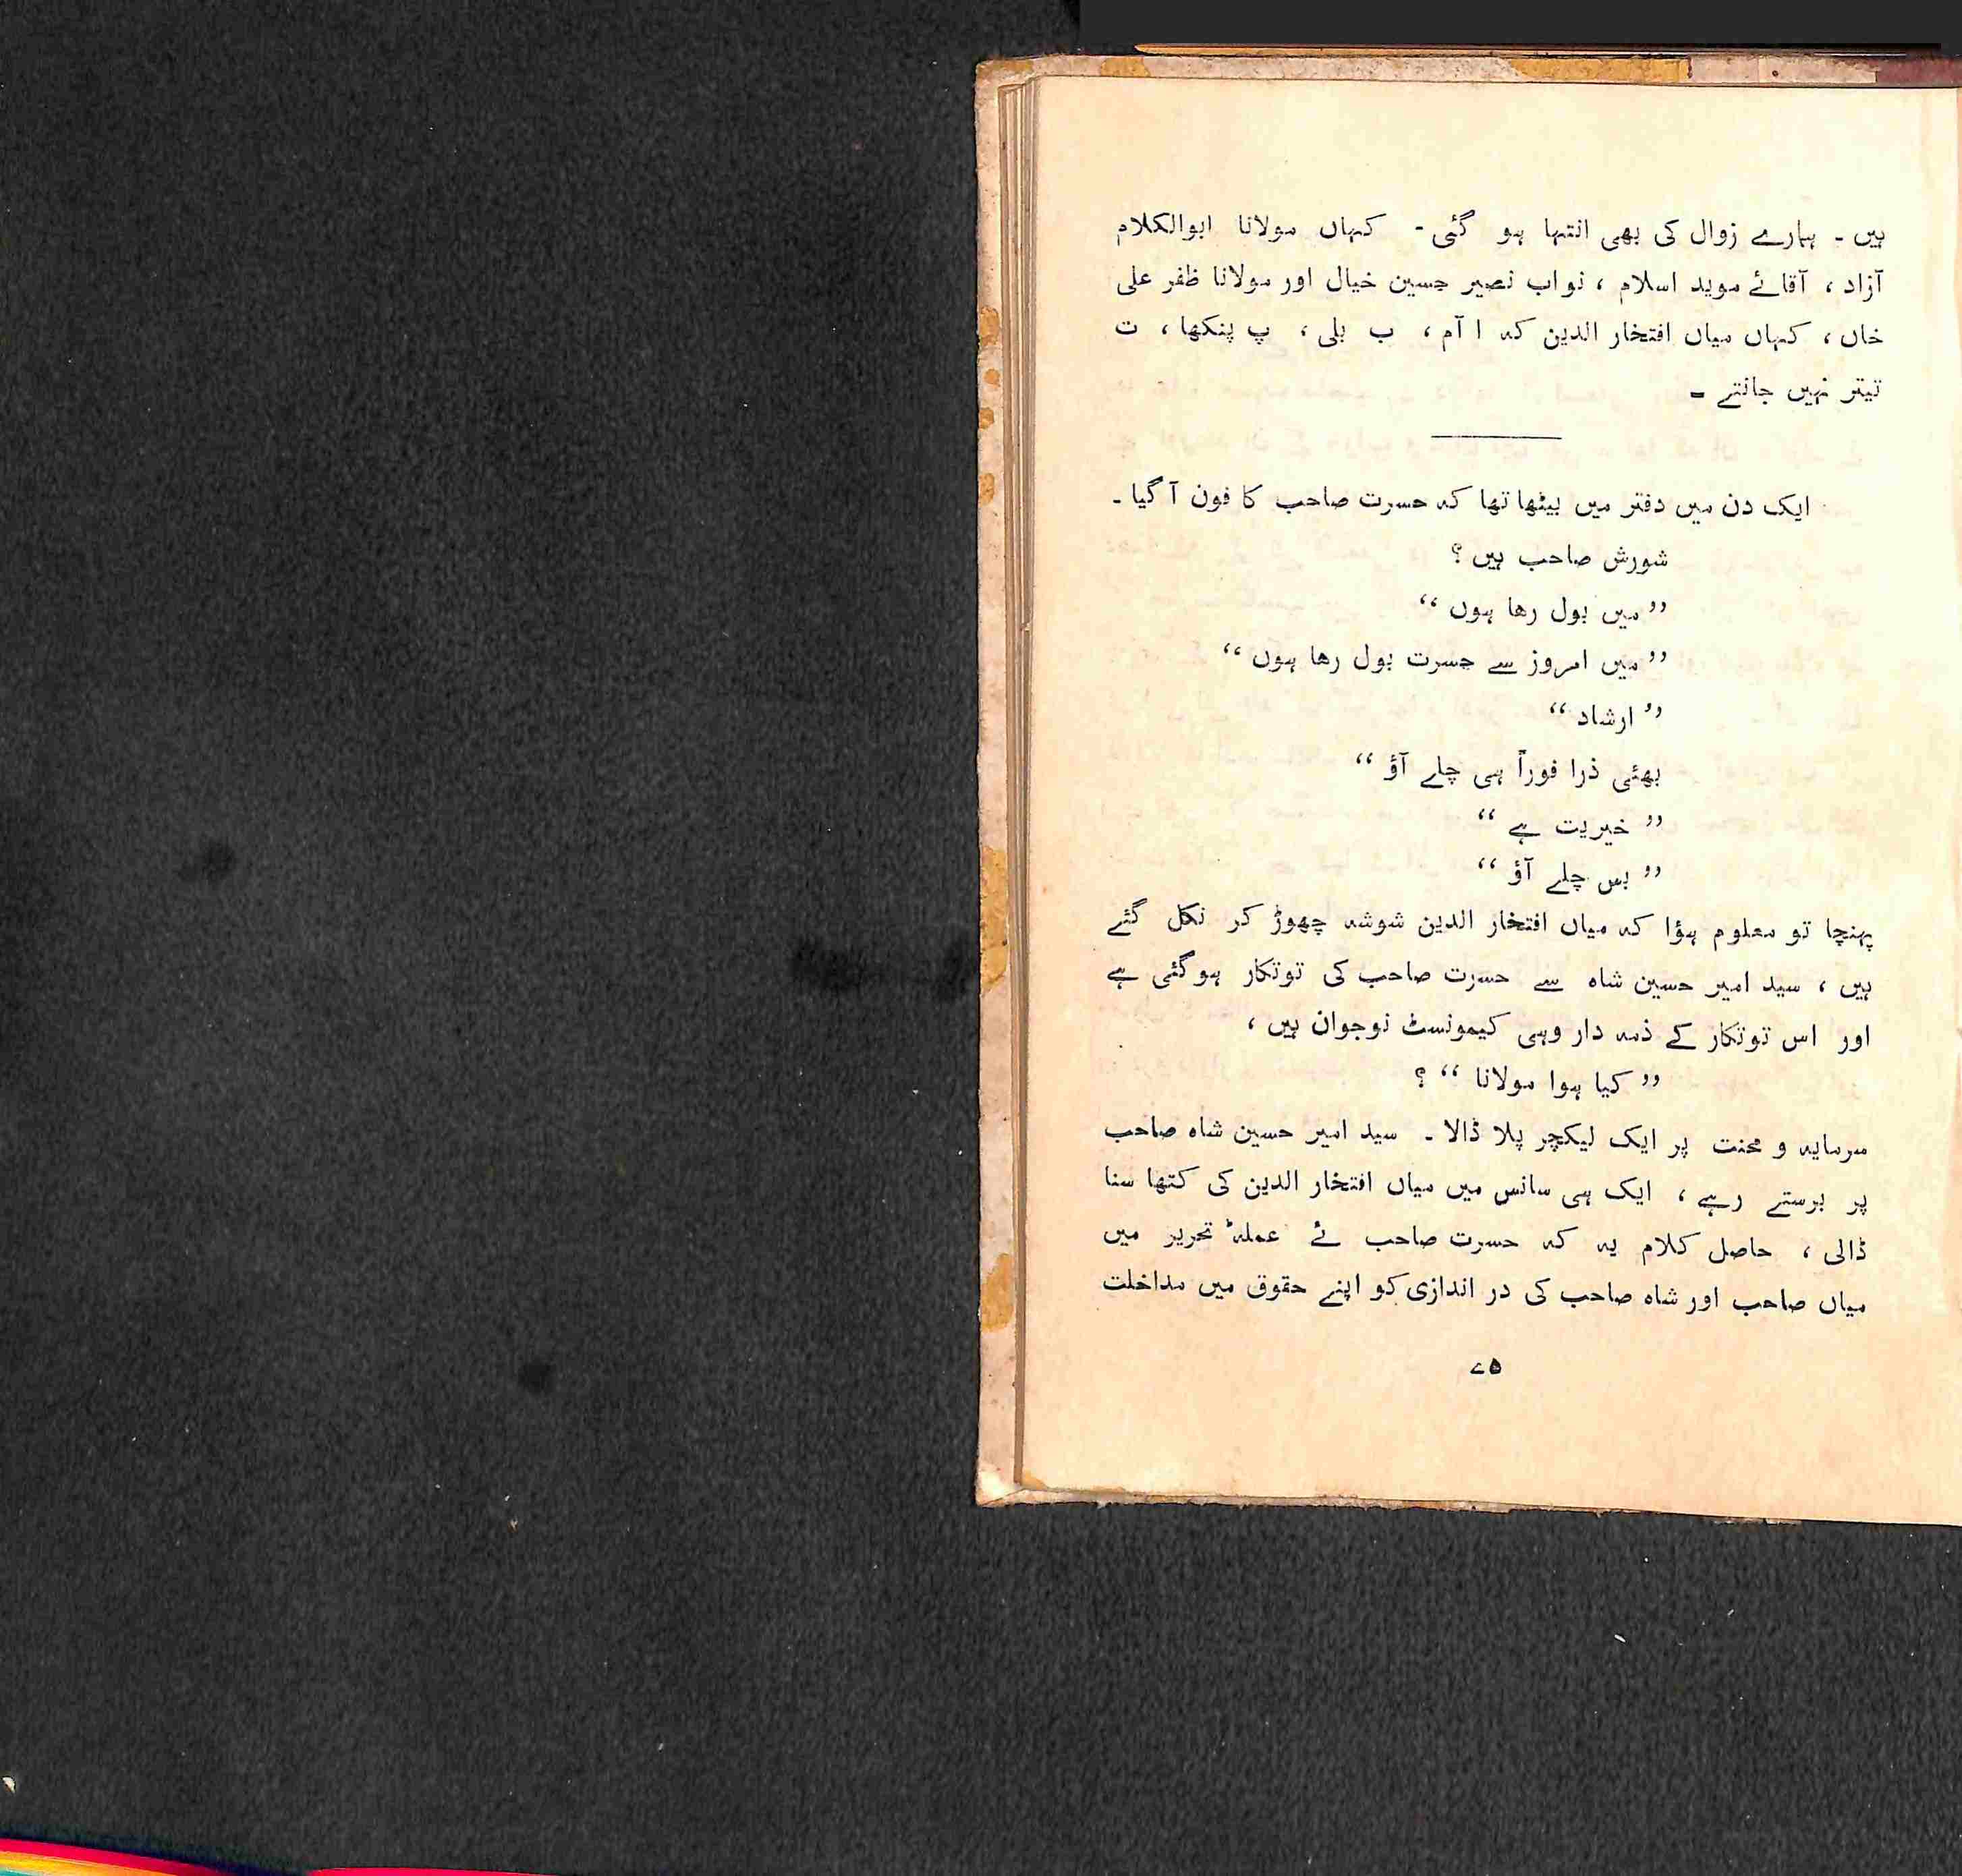 ہیں ۔ ہمارے زوال کی بھی انتہا ہو گئی ۔ کہاں مولانا ابوالکلام
آزاد ، آقائے موید اسلام ، نواب نصیر حسین خیال اور مولانا ظفر علی
خاں ، کہاں میاں افتخار الدین کہ ا آم ، ب بلی ، پ پنکھا ، ت
تیتر نہیں جانتے ۔
ایک دن میں دفتر میں بیٹھا تھا کہ حسرت صاحب کا فون آ گیا ۔
شورش صاحب ہیں ؟
” میں بول رھا ہوں “
” میں امروز سے حسرت بول رھا ہوں “
” ارشاد “
بھئی ذرا فوراً ہی چلے آؤ “
” خیریت ہے “
” بس چلے آؤ “
پہنچا تو معلوم ہؤا کہ میاں افتخار الدین شوشہ چھوڑ کر نکل گئے
ہیں ، سید امیر حسین شاہ سے حسرت صاحب کی توتکار ہو گئی ہے
اور اس توتکار کے ذمہ دار وہی کیمونسٹ نوجوان ہیں ،
” کیا ہوا مولانا “ ؟
سرمایہ و محنت پر ایک لیکچر پلا ڈالا ۔ سید امیر حسین شاہ صاحب
پر برستے رہے ، ایک ہی سانس میں میاں افتخار الدین کی کتھا سنا
ڈالی ، حاصل کلام یہ کہ حسرت صاحب نے عملۂ تحریر میں
میاں صاحب اور شاہ صاحب کی در اندازی کو اپنے حقوق میں مداخلت
۷۵